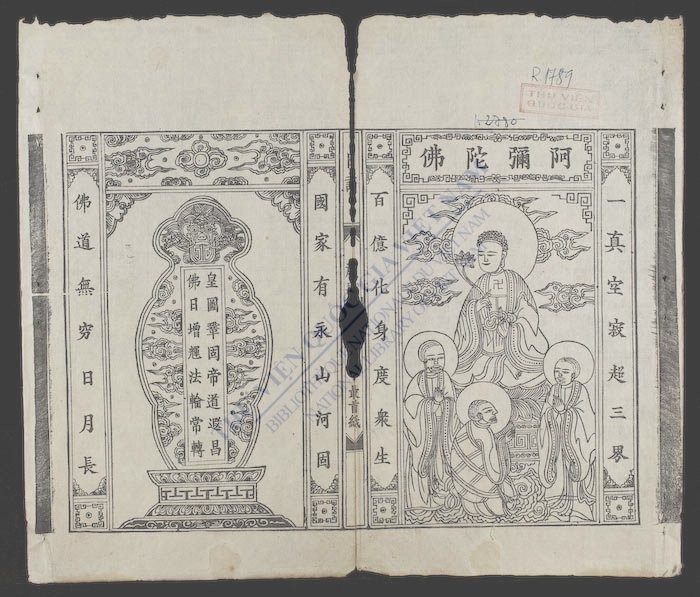 R.1789
THƯ VIỆN
QUỐC GIA
阿彌陀佛
一真空寂超三界
百億化身度衆生
卍
最首紙
國家有永山河固
皇圖鞏固帝道遐昌
佛日增輝法輪常轉
佛道無窮日月長
THƯ VIỆN QUỐC GIA VIỆT NAM
BIBLIOTHÈQUE NATIONALE DU VIETNAM
NATIONAL LIBRARY OF VIETNAM